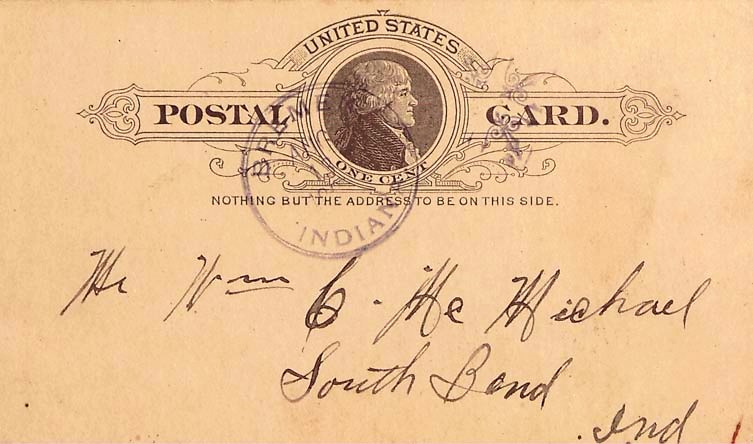 UNITED STATES
POSTAL CARD.
ONE CENT
NOTHING BUT THE ADDRESS TO BE ON THIS SIDE.
BREMEN
INDIANA
Mr Wm C. McMichael
South Bend
Ind